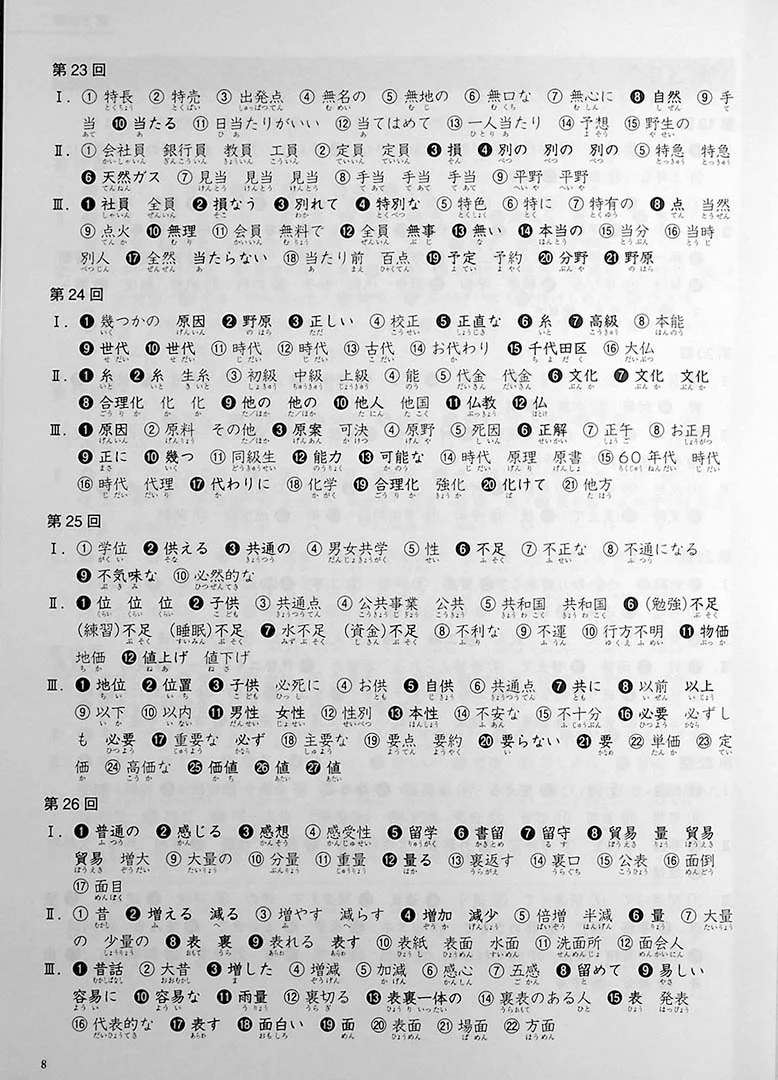 第23回
Ⅰ. ① 特長 ② 特売 ③ 出発点 ④ 無名の ⑤ 無地の ⑥ 無口な ⑦ 無心に ❽ 自然 ⑨ 手
当 ❿ 当たる ⑪ 日当たりがいい ⑫ 当てはめて ⑬ 一人当たり ⑭ 予想 ⑮ 野生の
Ⅱ. ① 会社員 銀行員 教員 工員 ② 定員 定員 ❸ 損 ❹ 別の 別の 別の ⑤ 特急 特急
❻ 天然ガス ⑦ 見当 見当 見当 ⑧ 手当 手当 手当 ⑨ 平野 平野
Ⅲ. ❶ 社員 全員 ❷ 損なう ❸ 別れて ❹ 特別な ⑤ 特色 ⑥ 特に ⑦ 特有の ❽ 点 当然
⑨ 点火 ❿ 無理 ⑪ 会員 無料で ⓬ 全員 無事 ⓭ 無い ⓮ 本当の ⑮ 当分 ⑯ 当時
別人 ⓱ 全然 当たらない ⑱ 当たり前 百点 ⓳ 予定 予約 ⓴ 分野 ㉑ 野原
第24回
Ⅰ. ❶ 幾つかの 原因 ❷ 野原 ❸ 正しい ④ 校正 ❺ 正直な ❻ 糸 ❼ 高級 ⑧ 本能
❾ 世代 ❿ 世代 ⑪ 時代 ⑫ 時代 ⑬ 古代 ⑭ お代わり ⓯ 千代田区 ⑯ 大仏
Ⅱ. ❶ 糸 ❷ 糸 生糸 ③ 初級 中級 上級 ④ 能 ⑤ 代金 代金 ❻ 文化 ❼ 文化 文化
❽ 合理化 化 化 ❾ 他の 他の ❿ 他人 他国 ⓫ 仏教 ⓬ 仏
Ⅲ. ❶ 原因 ② 原料 その他 ❸ 原案 可決 ④ 原野 ⑤ 死因 ❻ 正解 ⑦ 正午 ⑧ お正月
❾ 正に ❿ 幾つ ⑪ 同級生 ⓬ 能力 ⓭ 可能な ⑭ 時代 原理 原書 ⑮ 60年代 時代
⑯ 時代 代理 ⓱ 代わりに ⑱ 化学 ⓳ 合理化 強化 ⓴ 化けて ㉑ 他方
第25回
Ⅰ. ① 学位 ❷ 供える ❸ 共通の ④ 男女共学 ⑤ 性 ❻ 不足 ⑦ 不正な ⑧ 不通になる
❾ 不気味な ⑩ 必然的な
Ⅱ. ❶ 位 位 位 ❷ 子供 ③ 共通点 ④ 公共事業 公共 ⑤ 共和国 共和国 ❻ (勉強)不足
(練習)不足 (睡眠)不足 ❼ 水不足 (資金)不足 ⑧ 不利な ⑨ 不運 ⑩ 行方不明 ⓫ 物価
地価 ⓬ 値上げ 値下げ
Ⅲ. ❶ 地位 ❷ 位置 ❸ 子供 必死に ④ お供 ❺ 自供 ⑥ 共通点 ❼ 共に ❽ 以前 以上
⑨ 以下 ⑩ 以内 ⓫ 男性 女性 ⑫ 性別 ⓭ 本性 ⑭ 不安な ⑮ 不十分 ⓰ 必要 必ずし
も 必要 ⓱ 重要な 必ず ⑱ 主要な ⑲ 要点 要約 ⓴ 要らない ㉑ 要 ㉒ 単価 ㉓ 定
価 ㉔ 高価な ㉕ 価値 ㉖ 値 ㉗ 値
第26回
Ⅰ. ❶ 普通の ❷ 感じる ❸ 感想 ④ 感受性 ❺ 留学 ❻ 書留 ❼ 留守 ❽ 貿易 量 貿易
貿易 増大 ⑨ 大量の ⑩ 分量 ⑪ 重量 ⓬ 量る ⑬ 裏返す ⑭ 裏口 ⑮ 公表 ⑯ 面倒
⑰ 面目
Ⅱ. ① 昔 ❷ 増える 減る ③ 増やす 減らす ❹ 増加 減少 ⑤ 倍増 半減 ❻ 量 ⑦ 大量
の 少量の ❽ 表 裏 ❾ 表れる 表す ⑩ 表紙 表面 水面 ⑪ 洗面所 ⑫ 面会人
Ⅲ. ❶ 昔話 ② 大昔 ❸ 増した ④ 増減 ⑤ 加減 ⑥ 感心 ⑦ 五感 ❽ 留めて ❾ 易しい
容易に ❿ 容易な ⓫ 雨量 ⑫ 裏切る ⓭ 表裏一体の ⑭ 裏表のある人 ⓯ 表 発表
⑯ 代表的な ⓱ 表す ⓲ 面白い ⓳ 面 ⑳ 表面 ㉑ 場面 ㉒ 方面
8